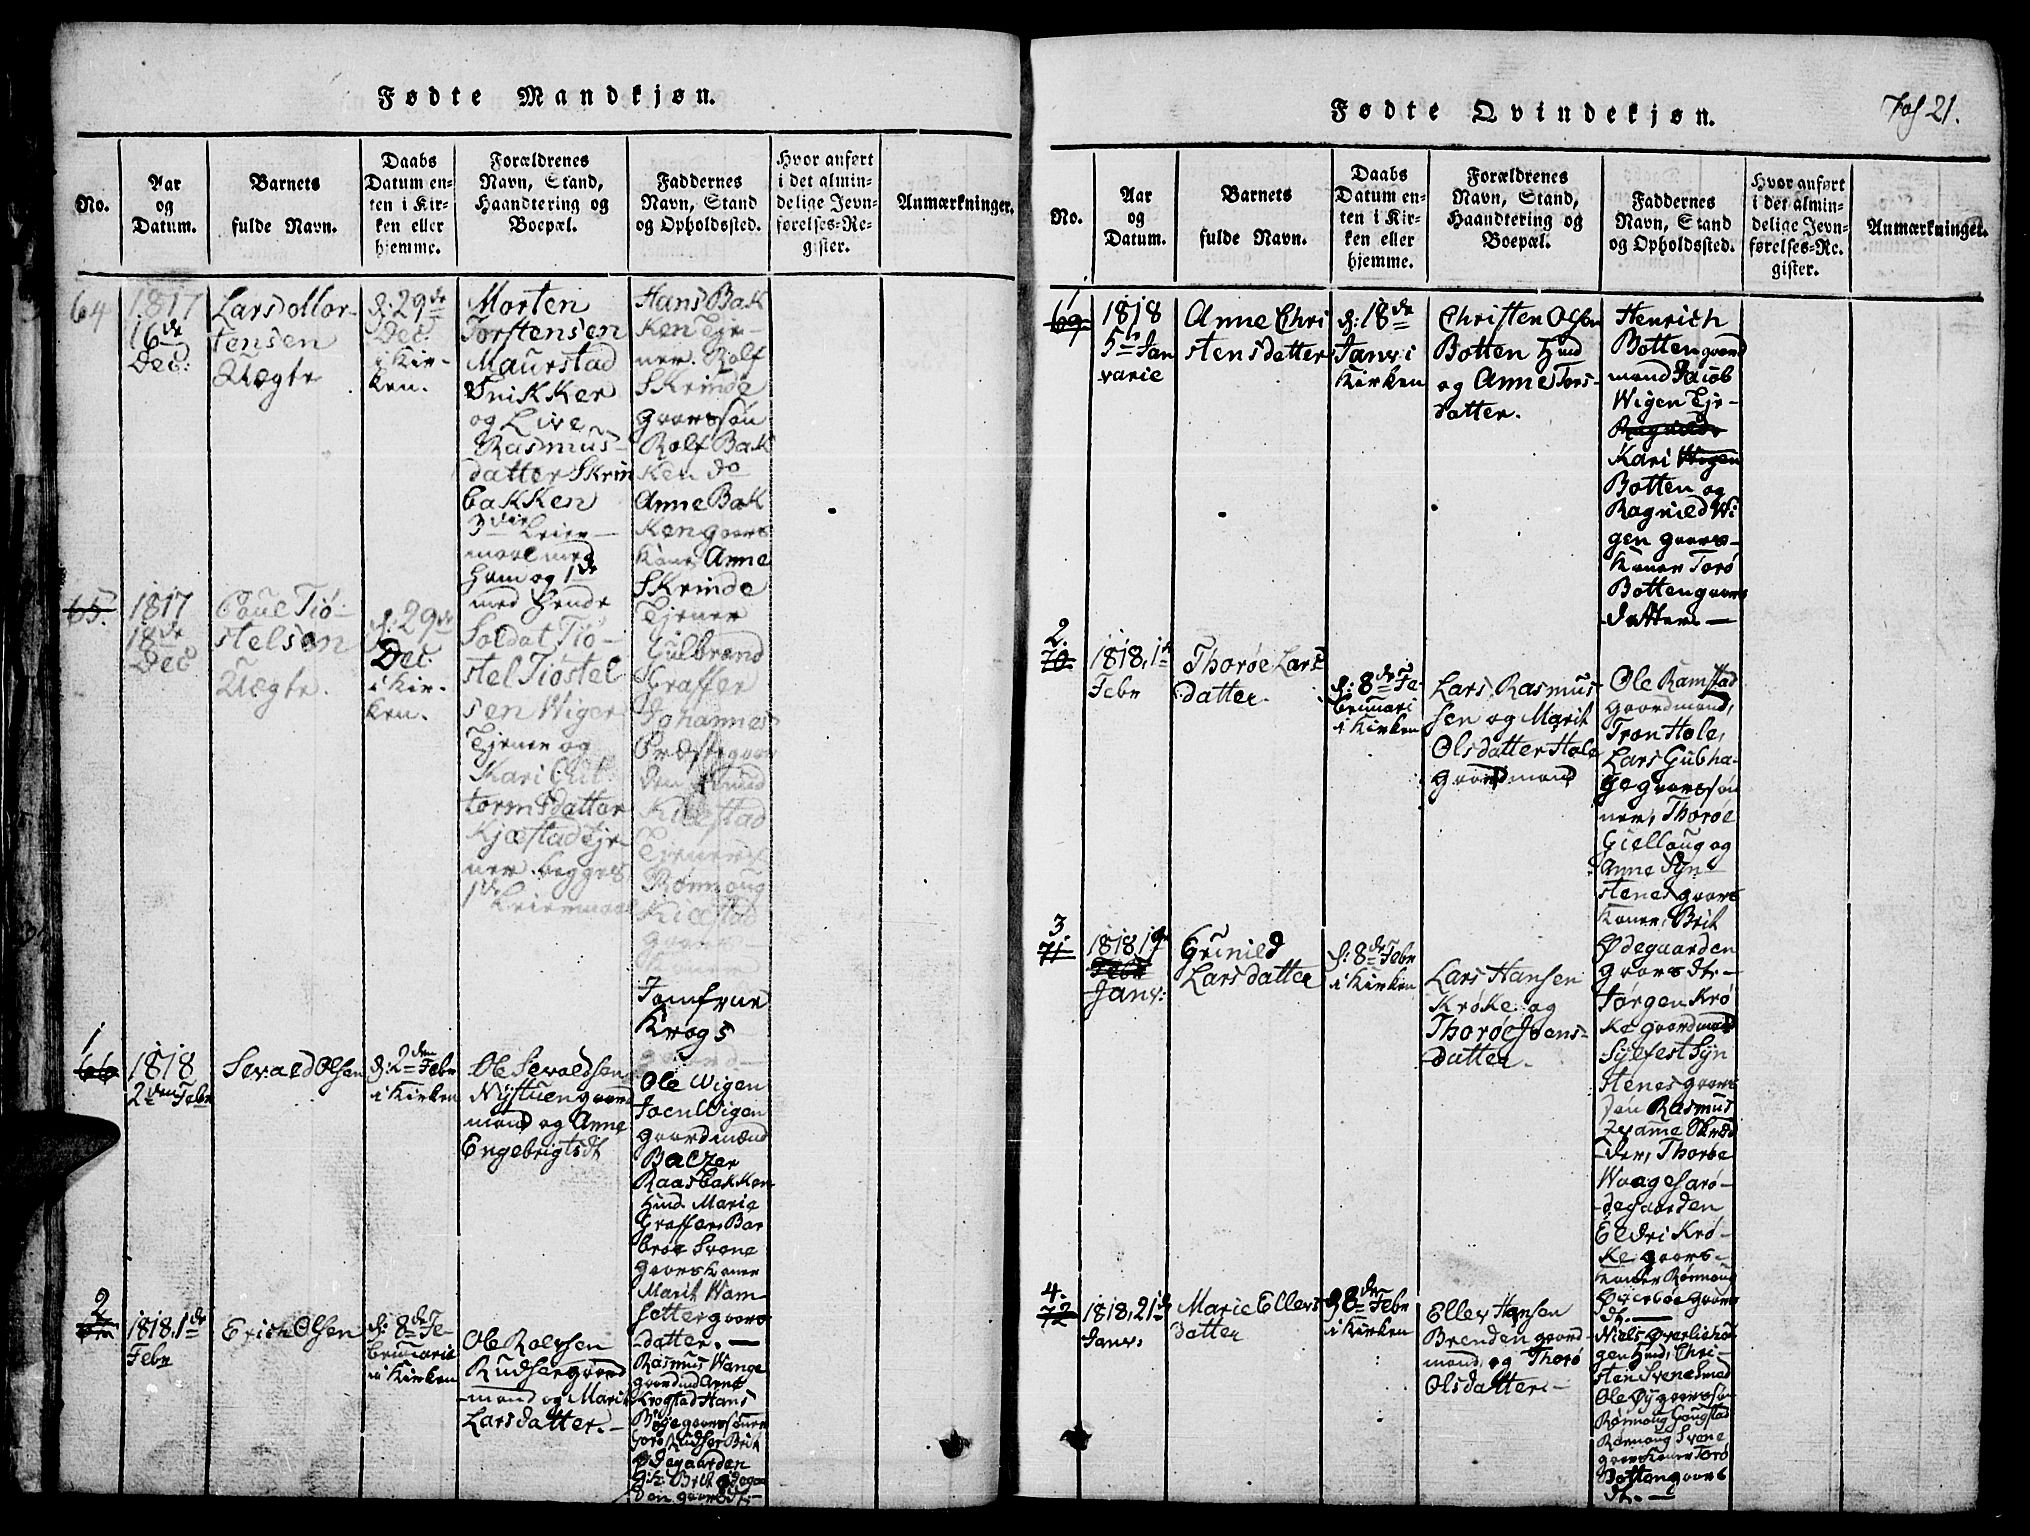 Fødte Mandkjøn.
No.
Aar
og
Datum.
Barnets
fulde Navn.
Daabs
Datum en-
ten i Kir-
ken eller
hjemme.
Forældrenes
Navn, Stand,
Haandtering og
Boepæl.
Faddernes
Navn, Stand
og Opholdssted.
Hvor anført
i det almin-
delige Jevn-
førelses-Re-
gister.
Anmærkninger.
64
1817
16de
Dec:
Lars Mor-
tensen
Uægte
d: 29de
Dec:
i Kir-
ken.
Morten
Torstensen
Maurstad
Snikker
og Live
Rasmus-
datter Skrin
bakken
3die Leier-
maal med
ham og 1de
med hende
Hans Bak
ken Tje-
ner. Rolf
Skrinde
gaarssøn
Rolf Bak
ken do
Anne Bak
ken gaars
kone, Anne
Skrinde
Tjener
65.
1817
18de
Dec
Poul Tiø-
stelsøn
Uægte.
d: 29de
Dec:
i Kir-
ken.
Soldat Tiø-
stel Tiøstel
sen Wigen
Tjener og
Kari Gut
tormsdatter
Kjæstad Tje-
ner begges
1de Leiermaal
Gulbrand
Graffer
Johannes
Præstegaar
den
Kiæstad
Tjenere
Rønnoug
Kiæstad
gaars-
koner
Jomfrue
Krogs
1
66
1818
2den Febr
Sevald Olsen
d: 2den Febr
i Kirken
Ole Sevaldsen
Nystuen gaard
mand og Anne
Engebrigtsdt
Ole Wigen
Joen Wigen
gaardmænd
Balzer
Raasbakken
Hmd. Marie
Graffer, Bar
broe Svene
gaarskoner
Marit Wam
Setter gaars
datter. —
2
1818, 1de
Febr
Erich Olsen
d: 8de Fe-
bruarie
i Kirken
Ole Rolvsen
Rudsar gaard
mand og Marit
Larsdatter. —
Rasmus Wange
gaardmd Arne
Krogstad Hans
Bøye gaarssønner
Toro Rudsar Brit
Ødegaarden
Brit Ødegaar
den gaarsdt. —
Fødte Qvindekjøn.
Fol 21.
No.
Aar
og
Datum.
Barnets
fulde Navn.
Daabs
Datum en-
ten i Kir-
ken eller
hjemme.
Forældrenes
Navn, Stand,
Haandtering og
Boepæl.
Faddernes
Navn, Stand
og Opholdssted.
Hvor anført
i det almin-
delige Jevn-
førelses-Re-
gister.
Anmærkninger.
1
69
1818
5te Jan
varie
Anne Chri
stensdatter
d: 18de
Janv: i
Kirken
Christen Olsen
Botten Hmd
og Anne Tors-
datter.
Henrich
Botten gaard
mand Jacob
Wigen Tje-
Ragnild
Kari Wigen
Botten og
Ragnild Wi
gen gaars-
koner Torø
Botten gaars
datter. —
2.
70.
1818, 1te
Febr
Thorøe Lars
datter.
d: 8de Fe
bruari
i Kirken
Lars Rasmus
sen og Marit
Olsdatter Hole
gaardmand
Ole Ramstad
gaardmand,
Tron Hole,
Lars Gubha-
ge gaarssøn
ner, Thorøe
Giellaug og
Anne Syn
stenes gaars
koner, Brit
Ødegaarden
gaarsdt. —
3.
71
1818 19
Febr
Janv:
Gunild
Larsdatter
d: 8de Febr
i Kirken
Lars Hansen
Krøke og
Thorøe Joens-
datter.
Jørgen Krø
ke gaardmand
Syvfest Syn
stenes gaars
søn Rasmus
Skræd
der, Thorøe
Waagesarø-
degaarden
Eldri Krø-
ke gaars-
koner Rønnoug
Øverbøe gaars
dt. —
4.
72
1818, 21de
Janv.
Marie Ellers
datter
d 8de Febr
i Kirken
Eller Hansen
Brenden gaard
mand, og Thorø
Olsdatter. —
Niels Øverlieha
gen Hmd, Chri-
sten Svene Smed
Ole Øy gaarssøn
Rønnoug Gaugstad
Rønnoug Svene
gaarskoner Torø
Botten gaars
dt. —